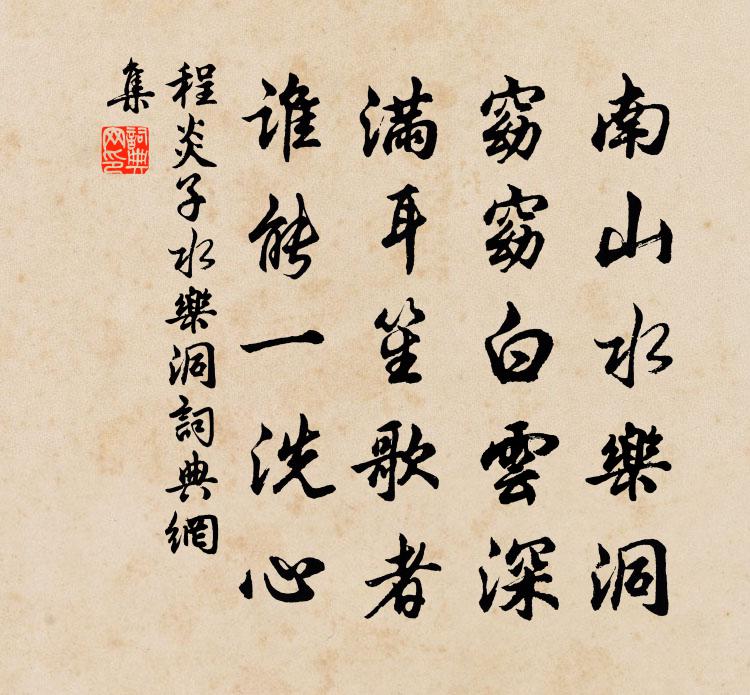 南山水樂洞
窈窈白雲深
滿耳笙歌者
誰能一洗心
程炎子水樂洞詞典網
集
詞典網印